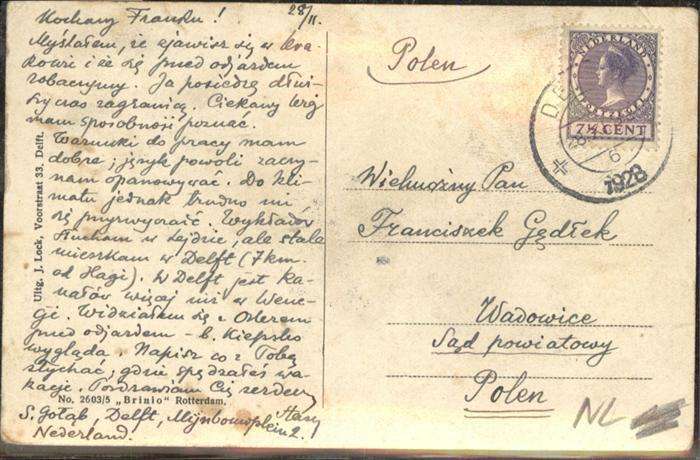 Kochany Franku! 28/II.
Myślałem, że zjawisz się w Kra-
kowie i że się przed odjazdem
zobaczymy. Ja posiedzę dłuż-
szy czas zagranicą. Ciekawy kraj
mam sposobność poznać.
Warunki do pracy mam
dobre; język powoli zaczy-
nam opanowywać. Do kli-
matu jednak trudno mi
się przyzwyczaić. Wykładów
słucham w Lejdzie, ale stale
mieszkam w Delft (7 km.
od Hagi). W Delft jest ka-
nałów więcej niż w Wene-
cji. Widziałem się z
przed odjazdem – b. kiepsko
wygląda. Napisz co z Tobą
słychać, gdzie spędzałeś wa-
kacje. Pozdrawiam Cię serdecz
Stasz
S. Gołąb, Delft, Mijnbouwplein 2.
Nederland.
No. 2603/5 „Brinio" Rotterdam.
Uitg. J. Lock, Voorstraat 33. Delft.
Polen
NEDERLAND
7½ CENT
DE
1928
Wielmożny Pan
Franciszek Gędłek
Wadowice
Sąd powiatowy
Polen
NL